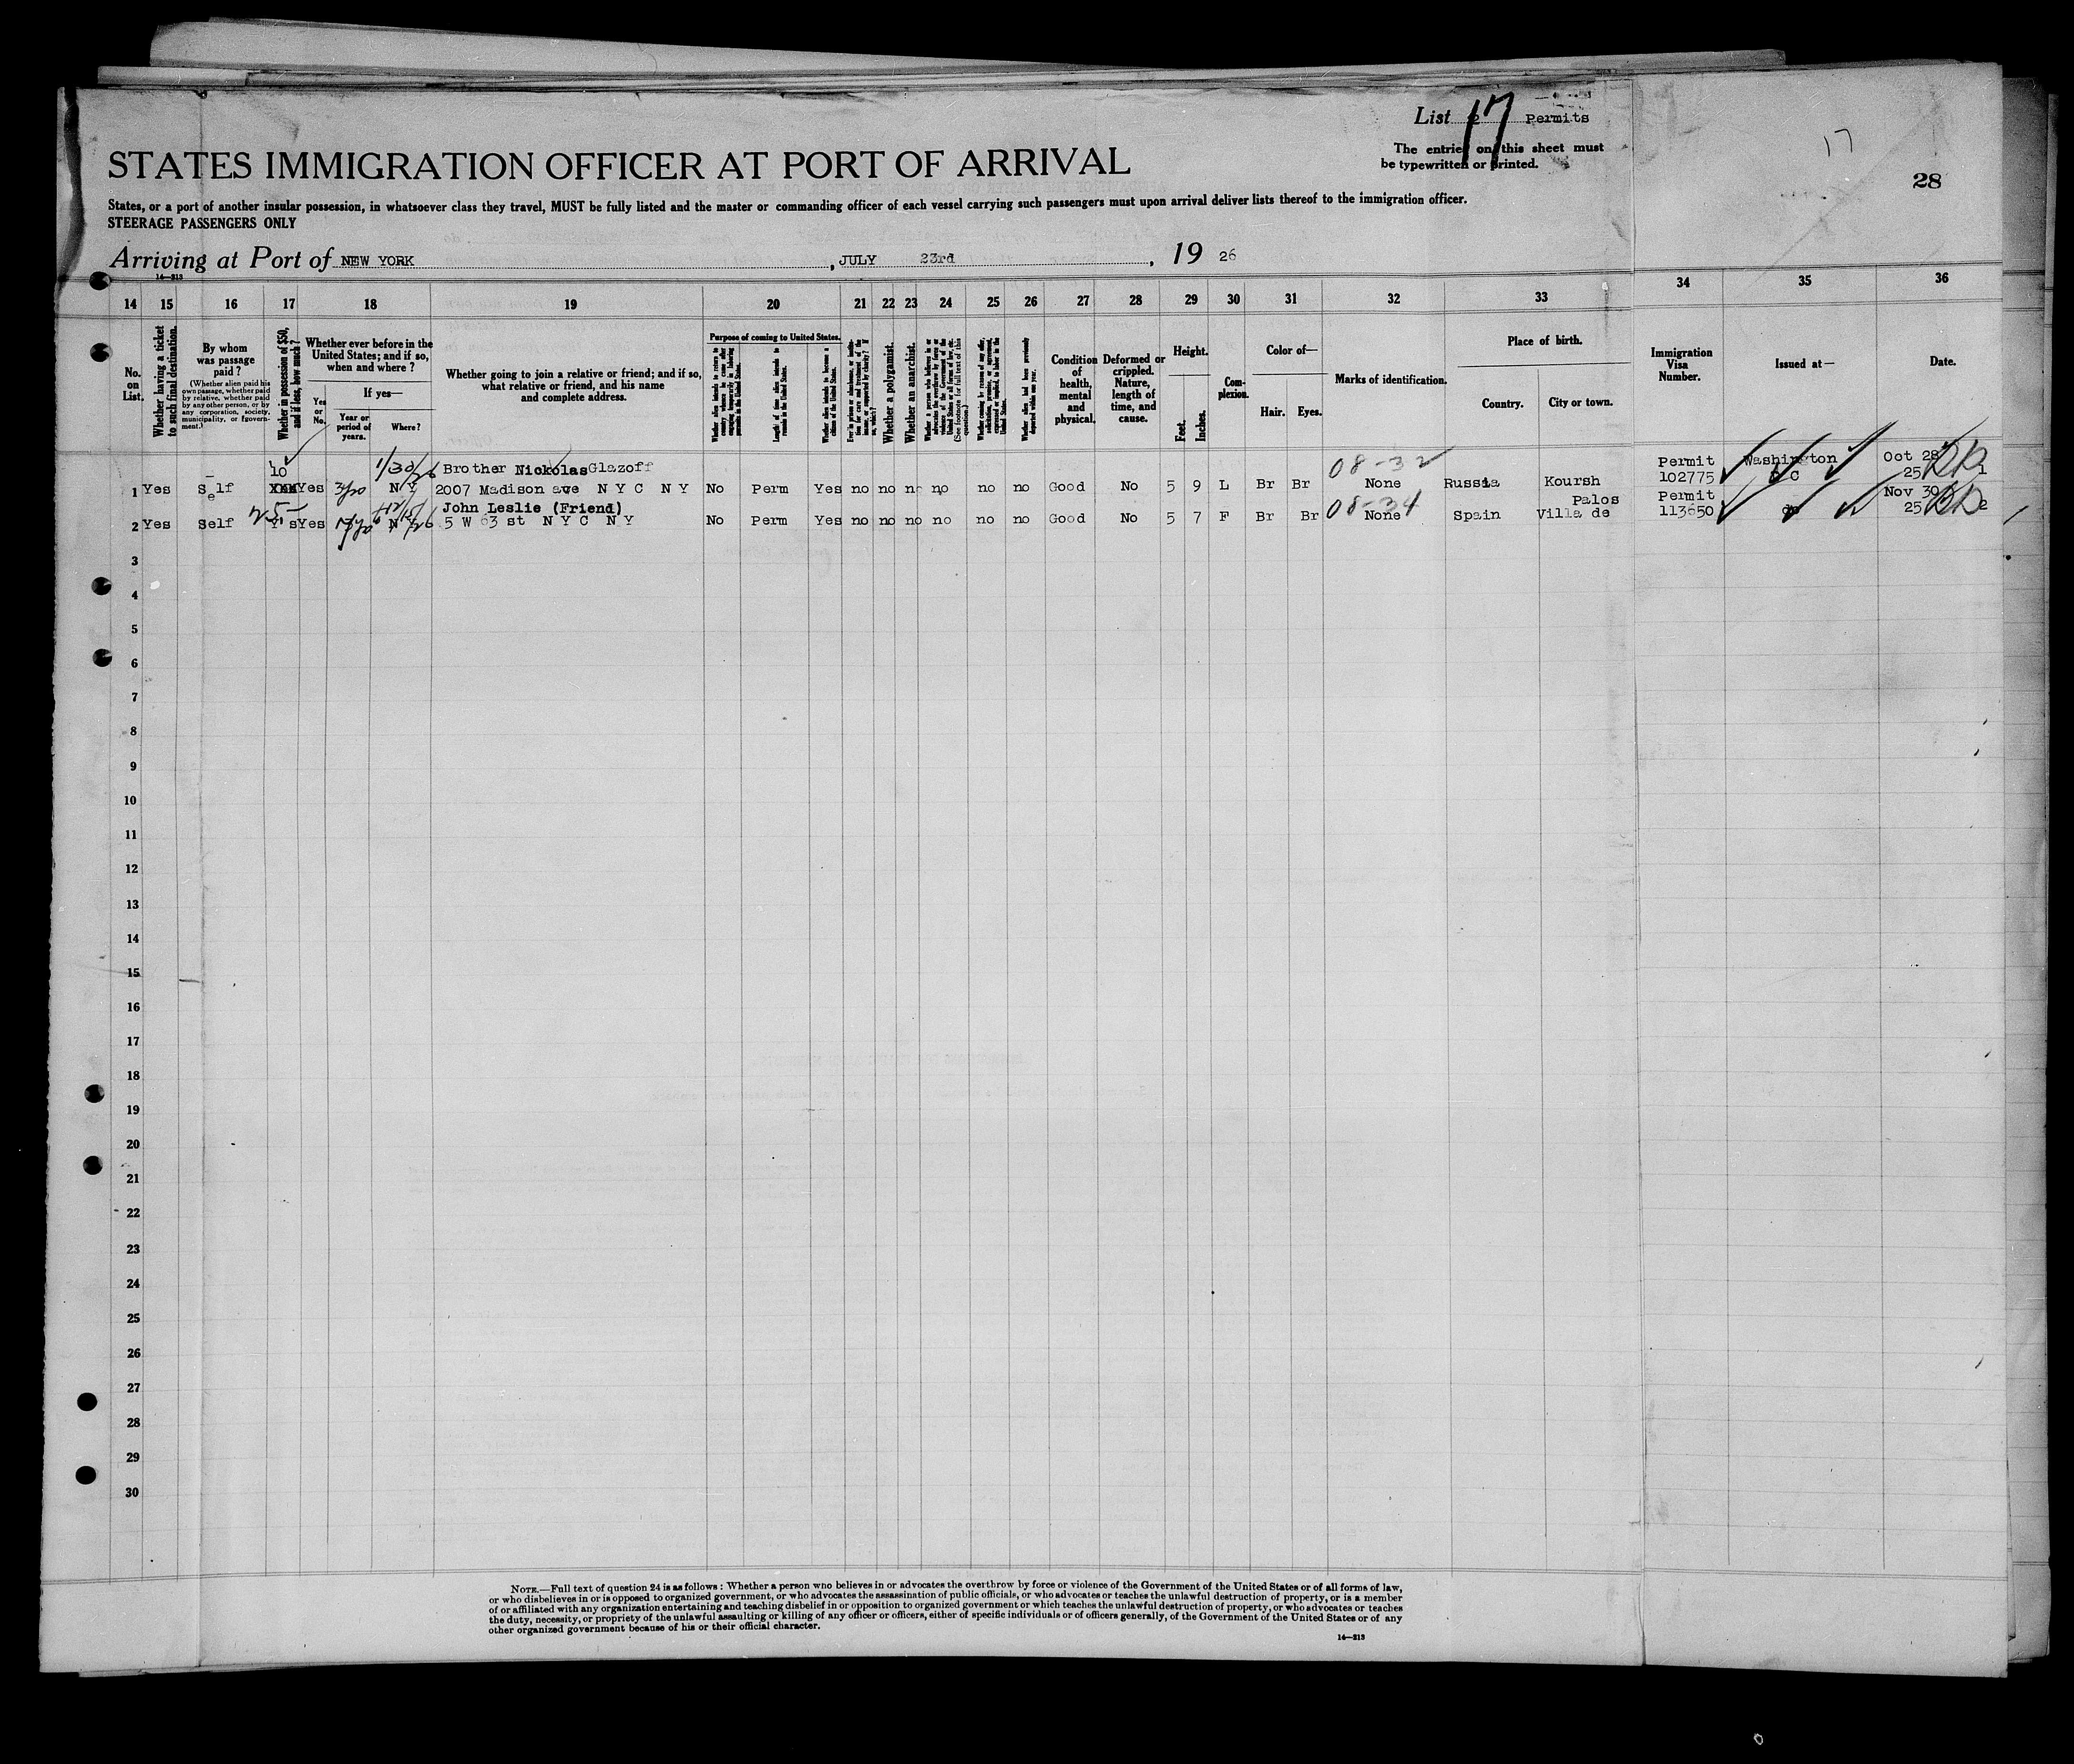 List 17 Permits
The entries on this sheet must
be typewritten or printed.
17
28
STATES IMMIGRATION OFFICER AT PORT OF ARRIVAL
States, or a port of another insular possession, in whatsoever class they travel, MUST be fully listed and the master or commanding officer of each vessel carrying such passengers must upon arrival deliver lists thereof to the immigration officer.
STEERAGE PASSENGERS ONLY
Arriving at Port of NEW YORK, JULY 23rd, 19 26
14—213
14 15 16 17 18 19 20 21 22 23 24 25 26 27 28 29 30 31 32 33 34 35 36
No. on List.
Whether having a ticket to such final destination.
By whom was passage paid?
(Whether alien paid his own passage, whether paid by relative, whether paid by any other person, or by any corporation, society, municipality, or government.)
Whether in possession of $50, and if less, how much?
Whether ever before in the United States; and if so, when and where?
Yes or No.
If yes—
Year or period of years.
Where?
Whether going to join a relative or friend; and if so, what relative or friend, and his name and complete address.
Purpose of coming to United States.
Whether alien intends to return to country whence he came after engaging temporarily in laboring pursuits in the United States.
Length of time alien intends to remain in the United States.
Whether alien intends to become a citizen of the United States.
Whether a polygamist.
Whether an anarchist.
Whether alien had been previously deported within one year.
Condition of health, mental and physical.
Deformed or crippled. Nature, length of time, and cause.
Height.
Feet.
Inches.
Complexion.
Color of—
Hair.
Eyes.
Marks of identification.
Place of birth.
Country.
City or town.
Immigration Visa Number.
Issued at—
Date.
10 1/30/26 Brother Nickolas Glazoff 08-32 Permit Washington Oct 28
1 Yes Self XXX Yes 3/20 N Y 2007 Madison ave N Y C N Y No Perm Yes no no no no no no Good No 5 9 L Br Br None Russia Koursh 102775 D C 25 1
25 John Leslie (Friend) 08-34 Palos Permit Nov 30
2 Yes Self Yes N Y 5 W 63 st N Y C N Y No Perm Yes no no no no no no Good No 5 7 F Br Br None Spain Villa de 113650 do 25 2
3
4
5
6
7
8
9
10
11
12
13
14
15
16
17
18
19
20
21
22
23
24
25
26
27
28
29
30
NOTE.—Full text of question 24 is as follows: Whether a person who believes in or advocates the overthrow by force or violence of the Government of the United States or of all forms of law,
or who disbelieves in or is opposed to organized government, or who advocates the assassination of public officials, or who advocates or teaches the unlawful destruction of property, or is a member
of or affiliated with any organization entertaining and teaching disbelief in or opposition to organized government or which teaches the unlawful destruction of property, or who advocates or teaches
the duty, necessity, or propriety of the unlawful assaulting or killing of any officer or officers, either of specific individuals or of officers generally, of the Government of the United States or of any
other organized government because of his or their official character.
14—213